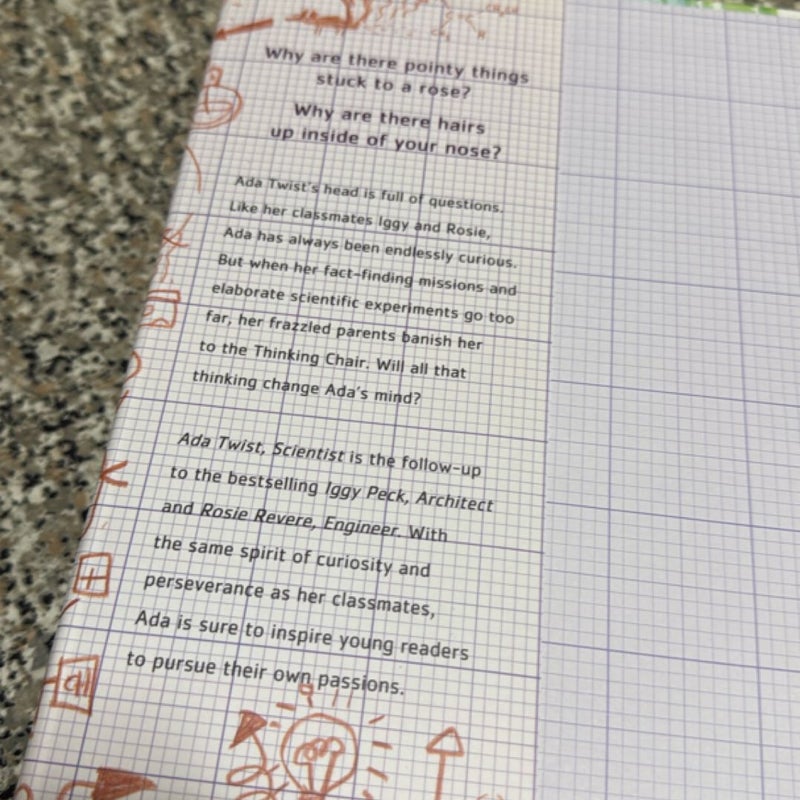 Why are there pointy things
stuck to a rose?
Why are there hairs
up inside of your nose?
Ada Twist's head is full of questions.
Like her classmates Iggy and Rosie,
Ada has always been endlessly curious.
But when her fact-finding missions and
elaborate scientific experiments go too
far, her frazzled parents banish her
to the Thinking Chair. Will all that
thinking change Ada's mind?
Ada Twist, Scientist is the follow-up
to the bestselling Iggy Peck, Architect
and Rosie Revere, Engineer. With
the same spirit of curiosity and
perseverance as her classmates,
Ada is sure to inspire young readers
to pursue their own passions.